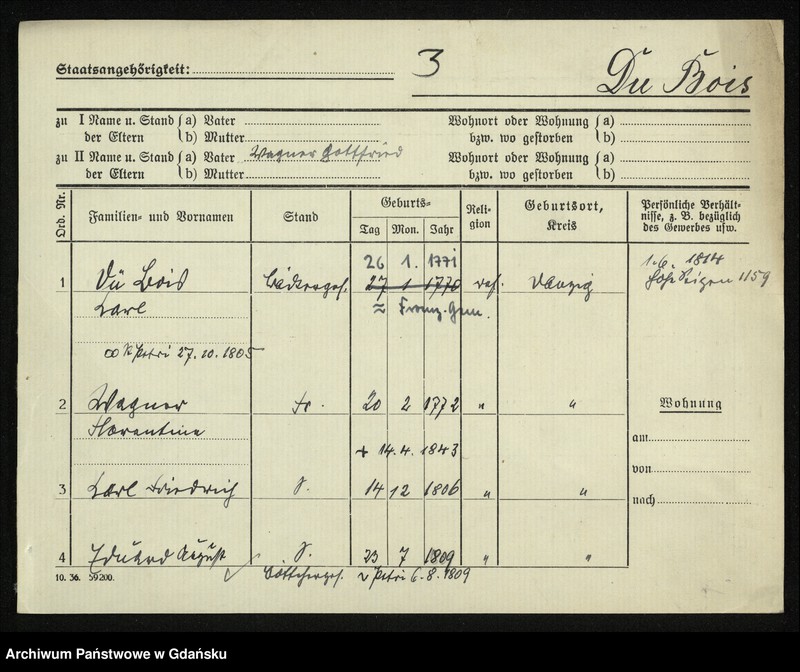 Staatsangehörigkeit: 3 Du Bois
zu I Name u. Stand der Eltern a) Vater
b) Mutter
Wohnort oder Wohnung bzw. wo gestorben a)
b)
zu II Name u. Stand der Eltern a) Vater Wagner Gottfried
b) Mutter
Wohnort oder Wohnung bzw. wo gestorben a)
b)
Ord. Nr. Familien- und Vornamen Stand Geburts- Tag Mon. Jahr Religion Geburtsort, Kreis Persönliche Verhältnisse, z. B. bezüglich des Gewerbes usw.
26 1. 1771 1.6. 1814
1 Dü Bois 27 1 1770 ref. Danzig 1159
Carl ≈ Franz. Gem.
∞ St Petri 27.10.1805
2 Wagner Fr. 20 2 1772 " " Wohnung
Florentine am
+ 14.4.1843
von
3 Carl Friedrich S. 14 12 1806 " "
nach
4 Eduard August S. 23 7 1809 " "
10. 36. 59200. Böttcherges. ~ Petri 6.8.1809
Archiwum Państwowe w Gdańsku